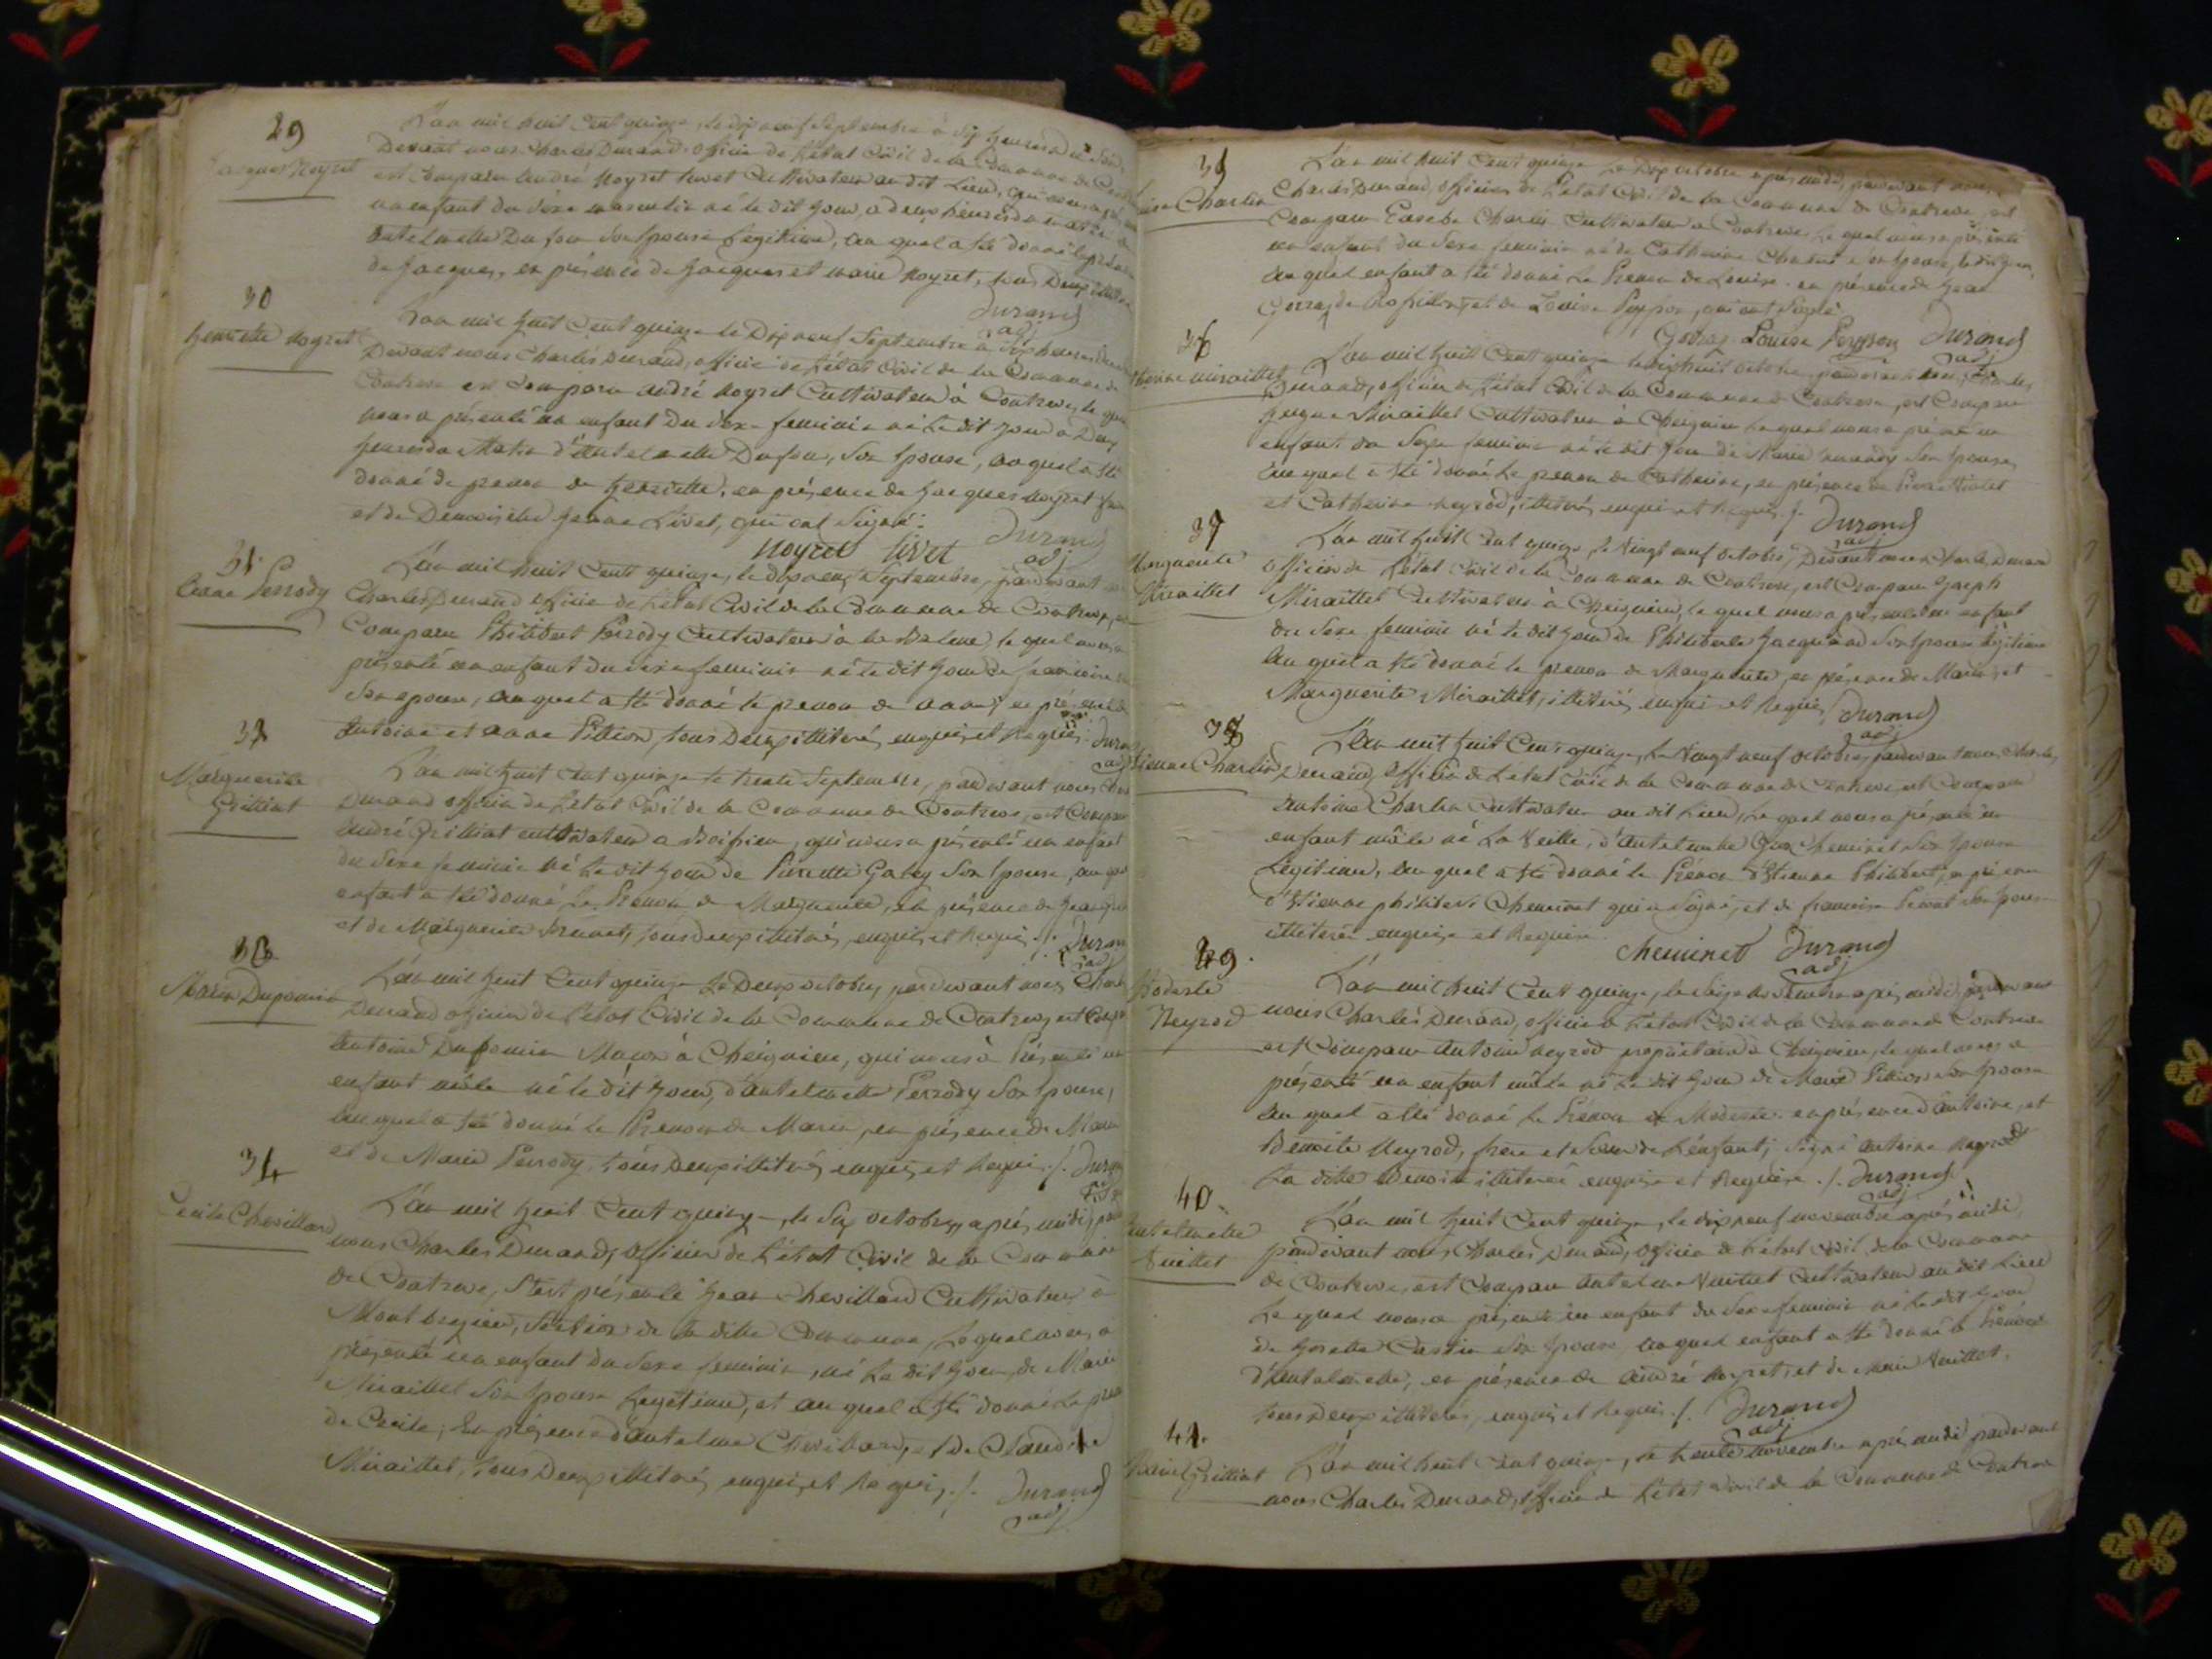 29
Jacques Noyret
L'an mil huit Cent quinze, le dix neuf Septembre à six heures du soir
Devant nous Charles Durand officier de l'état Civil de la Commune de
est Comparu André Noyret Cultivateur au dit Lieu, qui nous a
un enfant du sexe masculin né le dit jour, a deux heures du matin
Antelmette Dufour Son Epouse Legitime, au quel a été donné le prénom
de Jacques, en présence de Jacques et marie Noyret, tous Deux
Durand
adj
30
henriette Noyret
L'an mil huit Cent quinze le Dix neuf Septembre à six heures
Devant nous Charles Durand, officier de l'état Civil de la Commune de
Contrevoz est Comparu André Noyret Cultivateur à Contrevoz, le quel
nous a présenté un enfant Du Sexe feminin né Le dit jour a Deux
heures du Matin d'Antelmette Dufour, Son Epouse, au quel a été
donné le prenom de henriette, en présence de Jacques Noyret
et de Demoiselle Jeanne Livet, qui ont Signé.
Noyret Livet Durand
adj
31.
Anne Perrody
L'an mil huit Cent quinze, le dix neuf Septembre, pardevant
Charles Durand officier de l'état Civil de la Commune de Contrevoz,
Comparu Philibert Perrody Cultivateur à la Balme, le quel nous a
présenté un enfant du sexe feminin né le dit jour de
Son epouse, au quel a été donné le prenom de anne, en présence
Antoine et anne Pittion, tous Deux illiterés enquis et Requis. Durand
adj
32
Marguerite
Grilliat
L'an mil huit Cent quinze le trente Septembre, pardevant nous
Durand officier de l'état Civil de la Commune de Contrevoz, est Comparu
André Grilliat cultivateur a Boissieu, qui nous a présenté un enfant
du Sexe feminin né Le dit jour de Pierrette Gabry Son Epouse, au quel
enfant a été donné Le Prenom de Marguerite, en présence de
et de Marguerite Brunet, tous deux illiterés, enquis, et Requis ./. Durand
adj
33
Marin Dupomier
L'an mil huit Cent quinze Le Deux octobre, pardevant nous
Durand officier de l'état Civil de la Commune de Contrevoz est
Antoine Dupomier Maçon à Cheignieu, qui nous a Présenté un
enfant mâle né le dit jour, d'Antelmette Perrody Son Epouse,
au quel a été donné le Prenom de Marin, en présence de Marin
et de Marie Perrody, tous Deux illiterés enquis et Requis ./. Durand
34
Cecile Chevillard
L'an mil huit Cent quinze, le Six octobre, après midi,
nous Charles Durand, Officier de l'état Civil de la Commune
de Contrevoz, S'est présenté Jean Chevillard Cultivateur à
Montbregieu, Section de la ditte Commune, Lequel nous a
présenté un enfant du Sexe feminin, né Le dit jour, de Marie
Miraillet Son Epouse Legitime, et au quel a été donné Le
de Cecile, En présence d'Antelme Chevillard, et De Claudine
Miraillet, tous Deux illiterés enquis, et Requis ./. Durand
adj
35
Charlin
L'an mil huit Cent quinze Le Dix octobre après midi, pardevant nous,
Charles Durand, officier de l'état Civil de la Commune de Contrevoz, est
Comparu Eusebe Charlin Cultivateur a Contrevoz Le quel nous a présenté
un enfant du Sexe feminin né de Catherine
au quel enfant a été donné Le Prenom de Louise. en présence de Jean
et de Louise Peysson, qui ont Signé.
Louise Peysson Durand
adj
36
Miraillet
L'an mil huit Cent quinze le dix huit octobre, pardevant nous, Charles
Durand, officier de l'état Civil de la Commune de Contrevoz, est Comparu
Miraillet Cultivateur à Cheignieu Le quel nous a présenté un
enfant du Sexe feminin né le dit jour de Marie Son Epouse,
au quel a été donné Le prenom de Catherine, en présence de Pierre
et Catherine Neyrod, illiterés, enquis et Requis ./. Durand
adj
37
Marguerite
Miraillet
L'an mil huit Cent quinze, le Vingt neuf octobre, Devant nous Charles Durand
Officier de l'état Civil de la Commune de Contrevoz, est Comparu Joseph
Miraillet Cultivateur à Cheignieu, le quel nous a présenté un enfant
du Sexe feminin né le dit jour de Philiberte Jacquand Son Epouse légitime
au quel a été donné le prenom de Marguerite, en présence de Marie, et
Marguerite Miraillet, illiterés, enquis et Requis / Durand
adj
38
Etienne Charlin
L'an mil huit Cent quinze, Le Vingt neuf octobre, pardevant nous Charles
Durand, Officier de l'état Civil de la Commune de Contrevoz, est Comparu
Antoine Charlin Cultivateur au dit Lieu, Le quel nous a présenté un
enfant mâle né La Veille, d'Antelmette Cheminet Son Epouse
Légitime, au quel a été donné le Prénom d'Etienne Philibert, en présence
d'Etienne philibert Cheminet qui a Signé, et de francoise Son Epouse
illiterée enquise et Requise.
Cheminet Durand
adj
39.
Modeste
Neyrod
L'an mil huit Cent quinze, le Seize Novembre après midi, pardevant
nous Charles Durand, officier de l'état Civil de la Commune de Contrevoz
est Comparu Antoine Neyrod propriétaire à Cheignieu, le quel nous a
présenté un enfant mâle né Le dit jour de Marie Pittion Son Epouse
au quel a été donné Le Prénom de Modeste. en présence d'Antoine, et
Benoite Neyrod, frère et Soeur de L'enfant; Signé Antoine Neyrod
La ditte Benoite illiterée enquise et Requise ./. Durand
adj
40.
Antelmette
Vuillet
L'an mil huit Cent quinze, le dix neuf novembre après midi,
pardevant nous, Charles Durand, Officier de l'état Civil de la Commune
de Contrevoz, est Comparu Antelme Vuillet Cultivateur au dit Lieu
Le quel nous a présenté un enfant du Sexe feminin né Le dit jour
de Josette Castin Son Epouse, au quel enfant a été donné le Prénom
d'Antelmette, en présence de André Noyret, et de Marie Vuillet,
tous Deux illiterés, enquis et Requis ./. Durand
adj
41.
Grilliat
L'an mil huit Cent quinze, le trente novembre après midi pardevant
nous Charles Durand, officier de l'état Civil de la Commune de Contrevoz